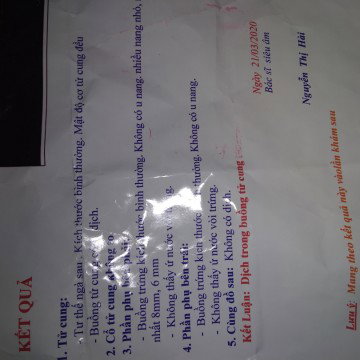 KẾT QUẢ
1. Tử cung:
- Tư thế ngả sau. Kích thước bình thường. Mật độ cơ tử cung đều
- Buồng tử cung có dịch.
2. Cổ tử cung:
3. Phần phụ
- Buồng trứng kích thước bình thường. Không có u nang. nhiều nang nhỏ,
nhất 8mm, 6 mm
- Không thấy ứ nước vòi trứng.
4. Phần phụ bên trái:
- Buồng trứng kích thước thường. Không có u nang.
- Không thấy ứ nước vòi trứng.
5. Cùng đồ sau: Không có dịch.
Kết Luận: Dịch trong buồng tử cung
Ngày 21/03/2020
Bác sĩ siêu âm
Nguyễn Thị Hải
Lưu ý: Mang theo kết quả này vào lần khám sau